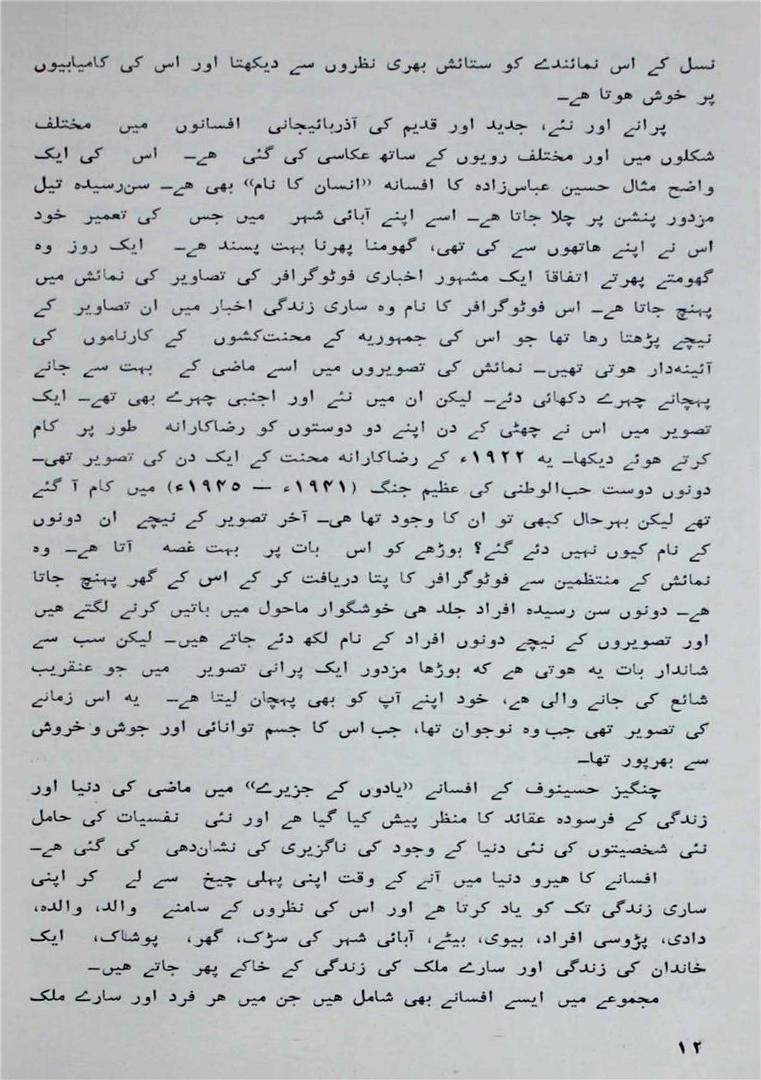 نسل کے اس نمائندے کو ستائش بھری نظروں سے دیکھتا اور اس کی کامیابیوں
پر خوش ھوتا ھے۔
پرانے اور نئے، جدید اور قدیم کی آذربائیجانی افسانوں میں مختلف
شکلوں میں اور مختلف رویوں کے ساتھ عکاسی کی گئی ھے۔ اس کی ایک
واضح مثال حسین عباس‌زادہ کا افسانہ ”انسان کا نام“ بھی ھے۔ سن‌رسیدہ تیل
مزدور پنشن پر چلا جاتا ھے۔ اسے اپنے آبائی شہر میں جس کی تعمیر خود
اس نے اپنے ھاتھوں سے کی تھی، گھومنا پھرنا بہت پسند ھے۔ ایک روز وہ
گھومتے پھرتے اتفاقاً ایک مشہور اخباری فوٹوگرافر کی تصاویر کی نمائش میں
پہنچ جاتا ھے۔ اس فوٹوگرافر کا نام وہ ساری زندگی اخبار میں ان تصاویر کے
نیچے پڑھتا رھا تھا جو اس کی جمہوریہ کے محنت‌کشوں کے کارناموں کی
آئینہ‌دار ھوتی تھیں۔ نمائش کی تصویروں میں اسے ماضی کے بہت سے جانے
پہچانے چہرے دکھائی دئے۔ لیکن ان میں نئے اور اجنبی چہرے بھی تھے۔ ایک
تصویر میں اس نے چھٹی کے دن اپنے دو دوستوں کو رضاکارانہ طور پر کام
کرتے ھوئے دیکھا۔ یہ ۱۹۲۲ء کے رضاکارانہ محنت کے ایک دن کی تصویر تھی۔
دونوں دوست حب‌الوطنی کی عظیم جنگ (۱۹۴۱ء — ۱۹۴۵ء) میں کام آ گئے
تھے لیکن بہرحال کبھی تو ان کا وجود تھا ھی۔ آخر تصویر کے نیچے ان دونوں
کے نام کیوں نہیں دئے گئے؟ بوڑھے کو اس بات پر بہت غصہ آتا ھے۔ وہ
نمائش کے منتظمین سے فوٹوگرافر کا پتا دریافت کر کے اس کے گھر پہنچ جاتا
ھے۔ دونوں سن رسیدہ افراد جلد ھی خوشگوار ماحول میں باتیں کرنے لگتے ھیں
اور تصویروں کے نیچے دونوں افراد کے نام لکھ دئے جاتے ھیں۔ لیکن سب سے
شاندار بات یہ ھوتی ھے کہ بوڑھا مزدور ایک پرانی تصویر میں جو عنقریب
شائع کی جانے والی ھے، خود اپنے آپ کو بھی پہچان لیتا ھے۔ یہ اس زمانے
کی تصویر تھی جب وہ نوجوان تھا، جب اس کا جسم توانائی اور جوش و خروش
سے بھرپور تھا۔
چنگیز حسینوف کے افسانے ”یادوں کے جزیرے“ میں ماضی کی دنیا اور
زندگی کے فرسودہ عقائد کا منظر پیش کیا گیا ھے اور نئی نفسیات کی حامل
نئی شخصیتوں کی نئی دنیا کے وجود کی ناگزیری کی نشان‌دھی کی گئی ھے۔
افسانے کا ھیرو دنیا میں آنے کے وقت اپنی پہلی چیخ سے لے کر اپنی
ساری زندگی تک کو یاد کرتا ھے اور اس کی نظروں کے سامنے والد، والدہ،
دادی، پڑوسی افراد، بیوی، بیٹے، آبائی شہر کی سڑک، گھر، پوشاک، ایک
خاندان کی زندگی اور سارے ملک کی زندگی کے خاکے پھر جاتے ھیں۔
مجموعے میں ایسے افسانے بھی شامل ھیں جن میں ھر فرد اور سارے ملک
۱۲